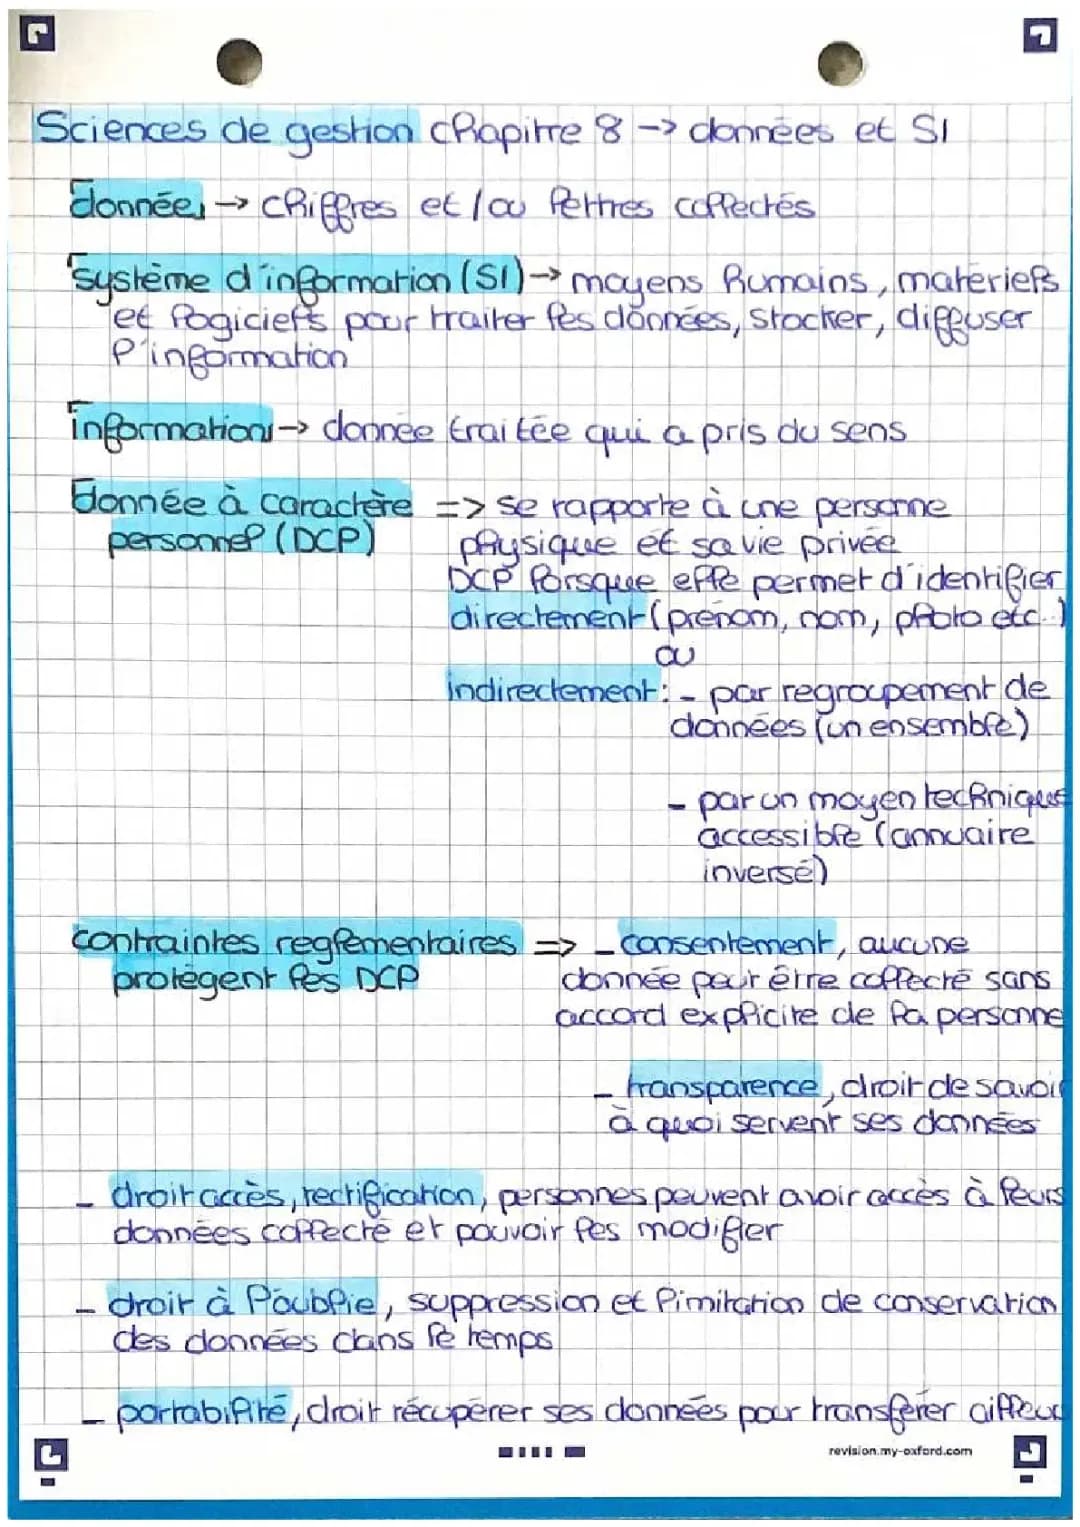 Sciences de gestion chapitre 8 -> données et SI
donnée, -> chiffres et/ou lettres collectés
système d'information (SI) -> moyens humains, matériels
et logiciels pour traiter les données, stocker, diffuser
l'information
information -> donnée traitée qui a pris du sens
donnée à caractère => se rapporte à une personne
personnel (DCP) physique et sa vie privée
DCP lorsque elle permet d'identifier
directement (prénom, nom, photo etc..)
ou
indirectement : - par regroupement de
données (un ensemble)
- par un moyen techniques
accessible (annuaire
inversé)
contraintes reglementaires => - consentement, aucune
protègent les DCP donnée peut être collecté sans
accord explicite de la personne
- transparence, droit de savoir
à quoi servent ses données
- droit accès, rectification, personnes peuvent avoir accès à leurs
données collecté et pouvoir les modifier
- droit à l'oublie, suppression et limitation de conservation
des données dans le temps
- portabilité, droit récupérer ses données pour transférer ailleurs
revision.my-oxford.com